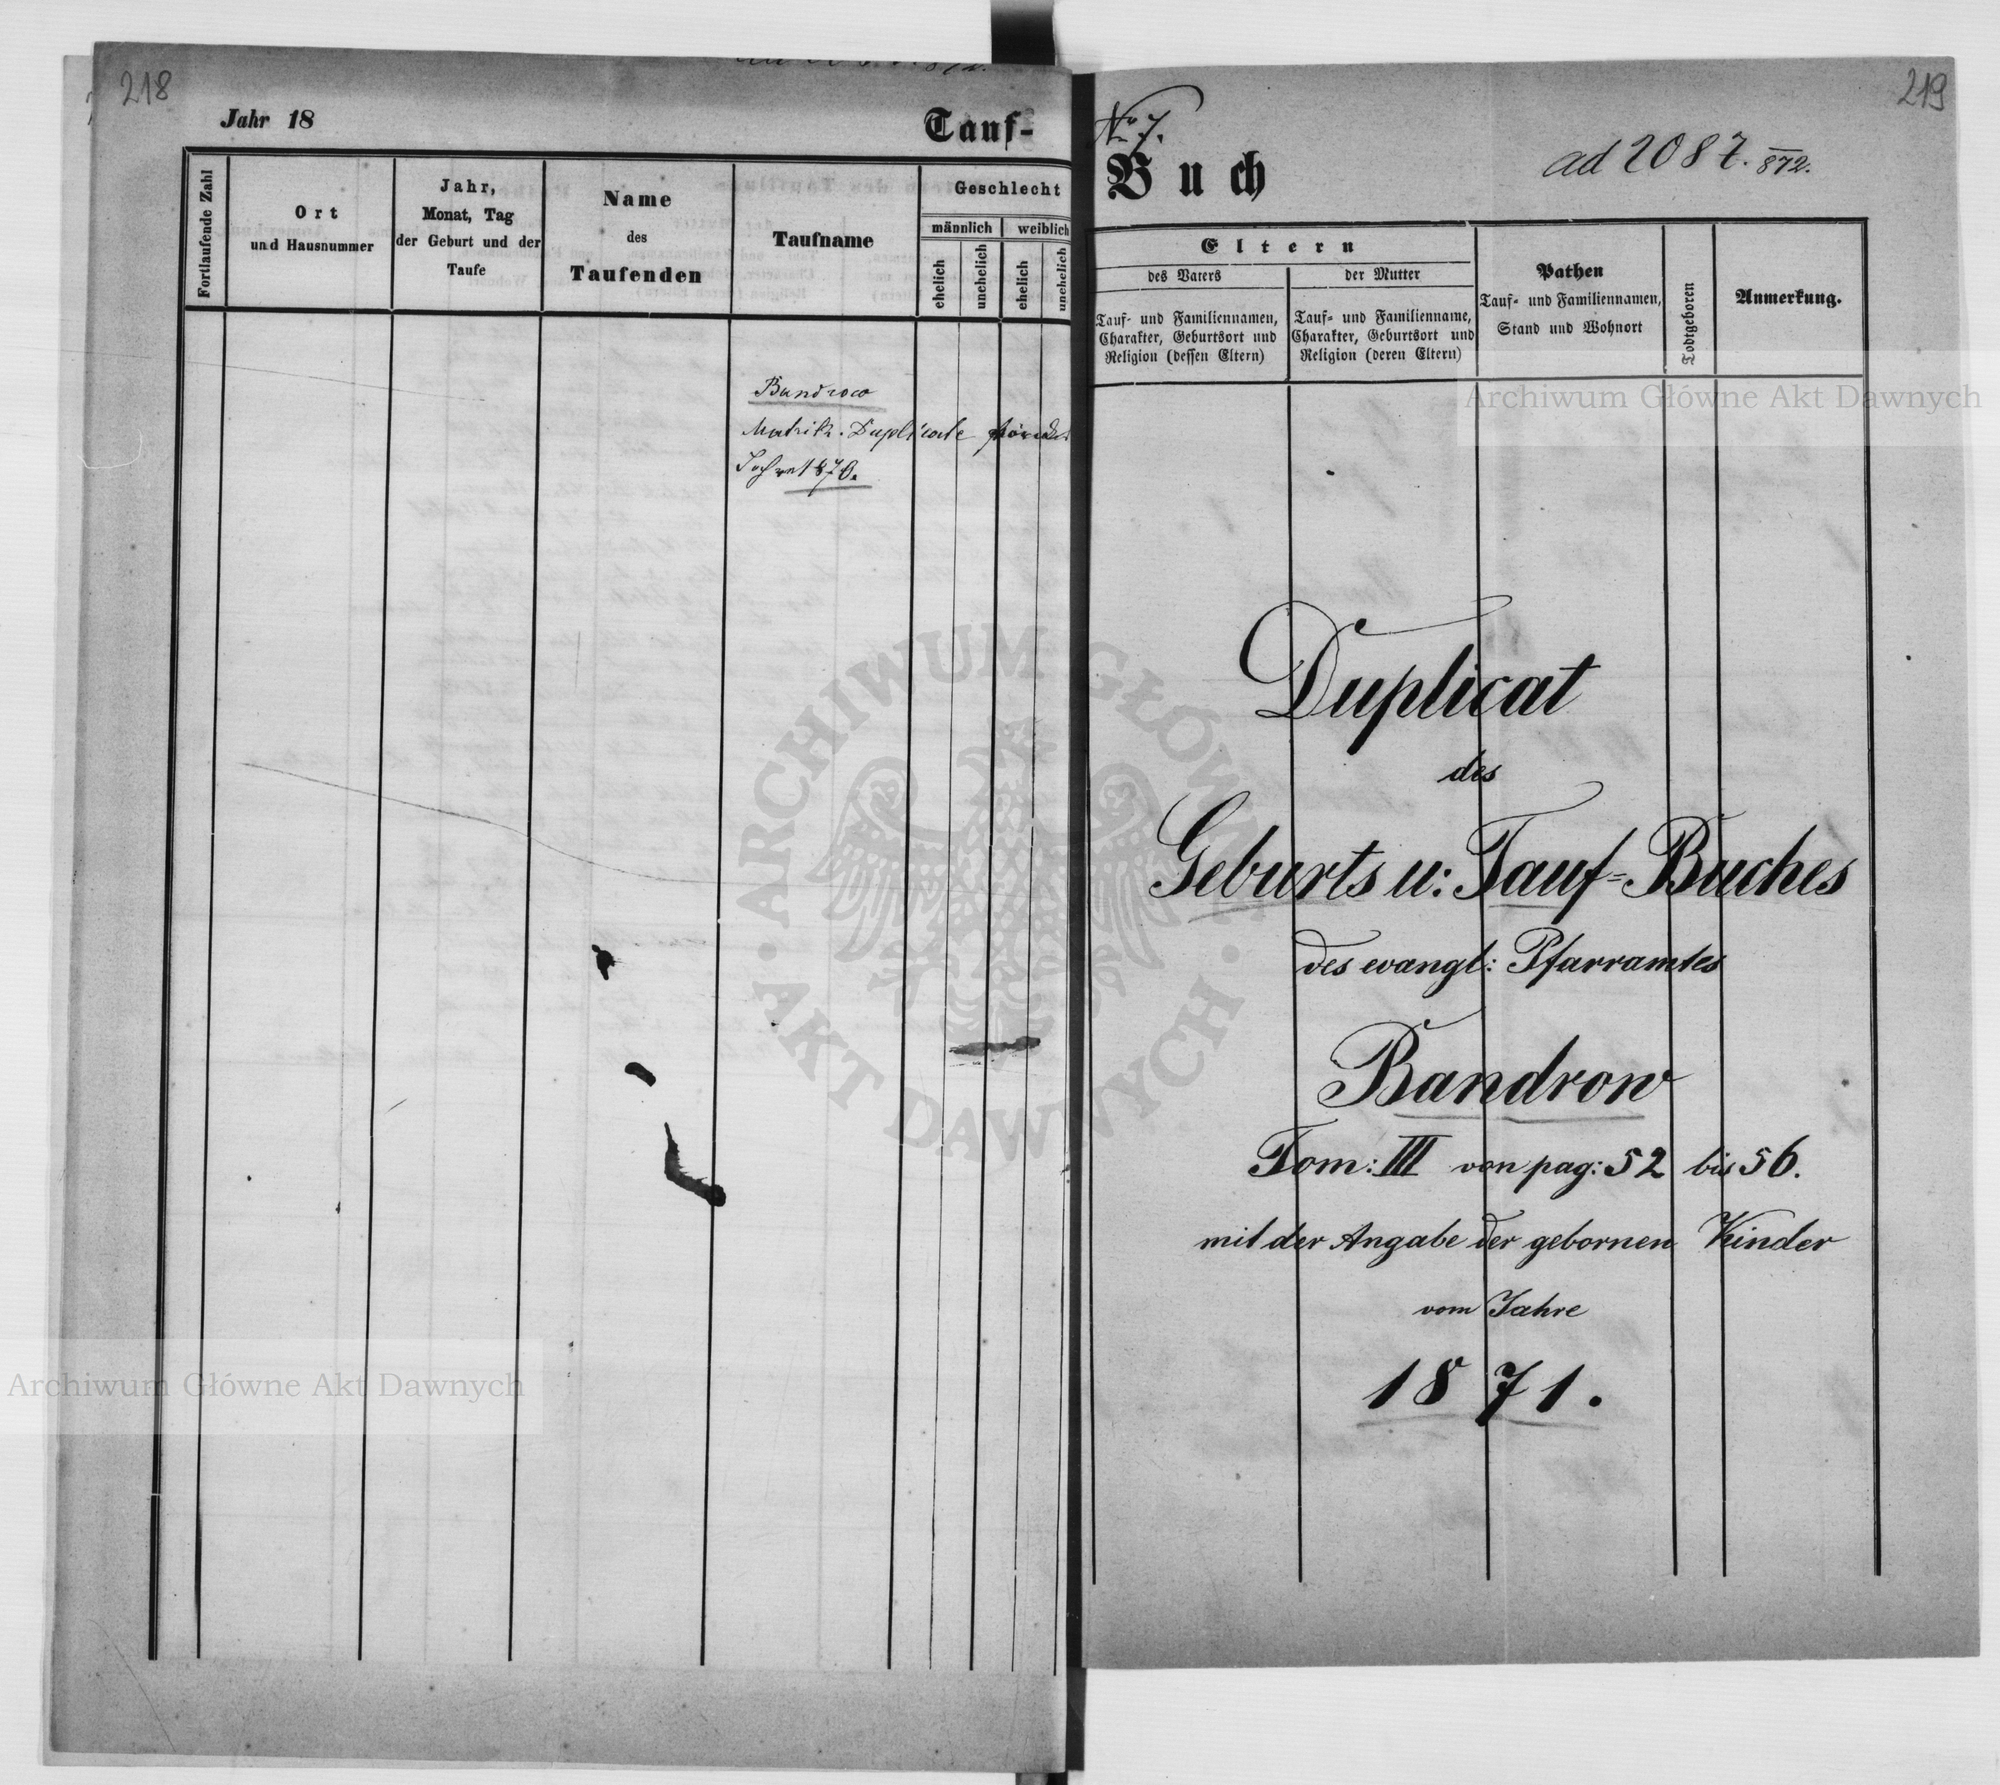 218
Jahr 18
Tauf-
Fortlaufende Zahl
Ort
und Hausnummer
Jahr,
Monat, Tag
der Geburt und der
Taufe
Name
des
Taufenden
Taufname
Geschlecht
männlich
weiblich
ehelich
unehelich
ehelich
unehelich
Bandrow
Matrik. Duplicate
Jahre 1870.
219
No 7.
Buch
ad 2087. 872.
Eltern
des Vaters
der Mutter
Tauf- und Familiennamen,
Charakter, Geburtsort und
Religion (dessen Eltern)
Tauf- und Familienname,
Charakter, Geburtsort und
Religion (deren Eltern)
Pathen
Tauf- und Familiennamen,
Stand und Wohnort
Todtgeboren
Anmerkung.
Duplicat
des
Geburts u: Tauf-Buches
des evangl: Pfarramtes
Bandrow
Tom: III von pag: 52 bis 56.
mit der Angabe der gebornen Kinder
vom Jahre
1871.
Archiwum Główne Akt Dawnych
ARCHIWUM GŁÓWNE
AKT DAWNYCH
Archiwum Główne Akt Dawnych